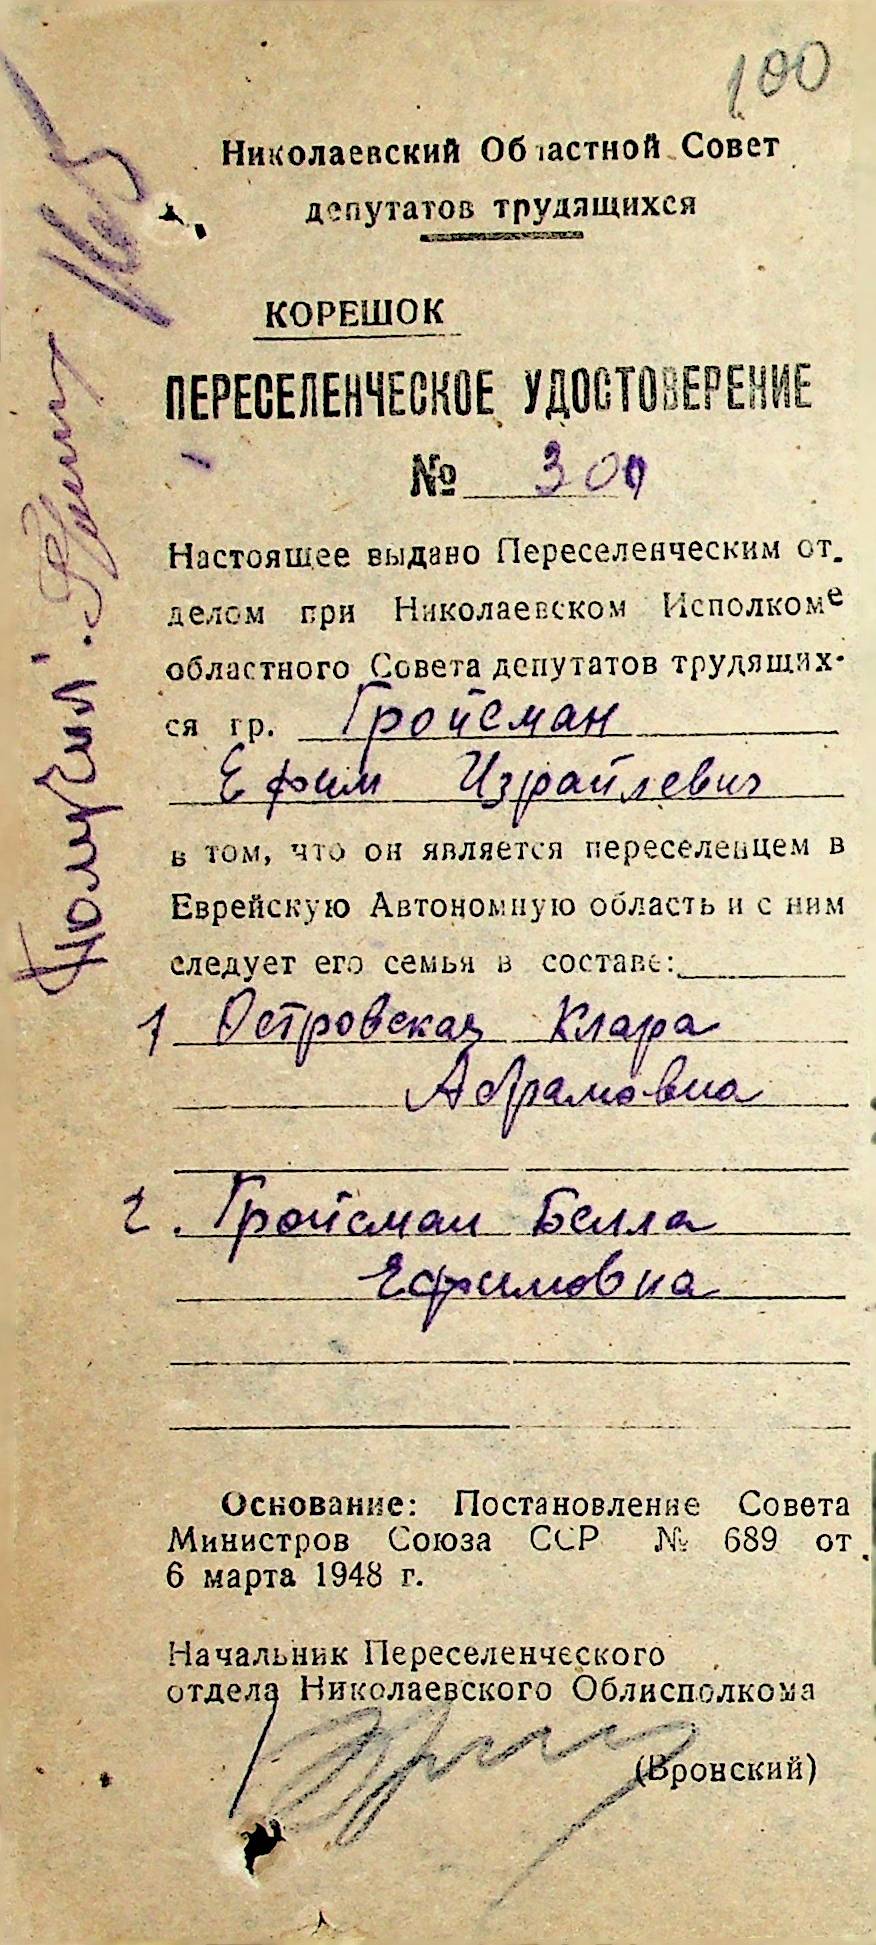 100
Николаевский Областной Совет
депутатов трудящихся
КОРЕШОК
ПЕРЕСЕЛЕНЧЕСКОЕ УДОСТОВЕРЕНИЕ
№ 300
Настоящее выдано Переселенческим от.
делом при Николаевском Исполкоме
областного Совета депутатов трудящих-
ся гр. Гройсман
Ефим Израйлевич
в том, что он является переселенцем в
Еврейскую Автономную область и с ним
следует его семья в составе:
1 Островская Клара
Абрамовна
2. Гройсман Белла
Ефимовна
Основание: Постановление Совета
Министров Союза ССР № 689 от
6 марта 1948 г.
Начальник Переселенческого
отдела Николаевского Облисполкома
(Вронский)
Получил:
165